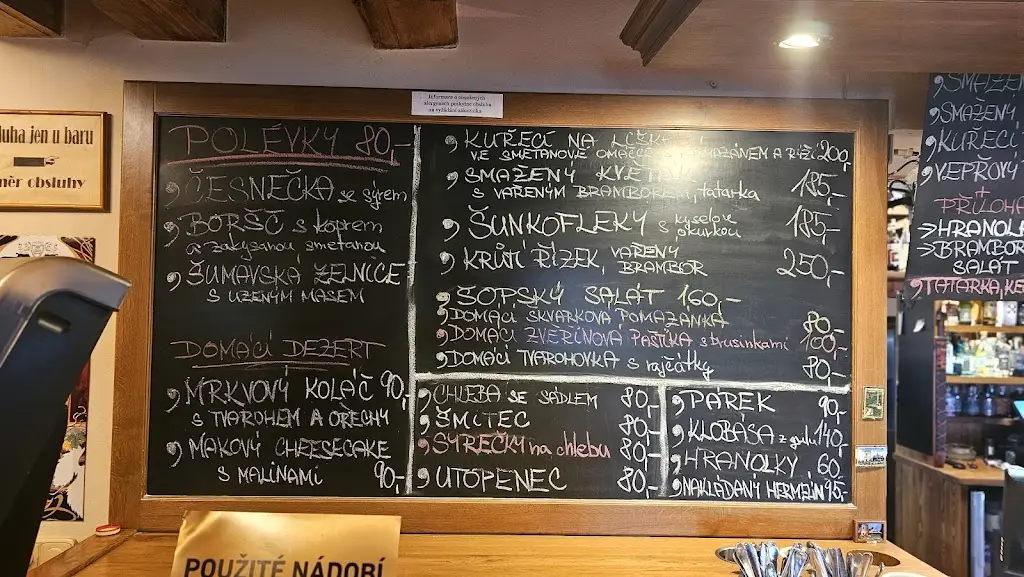 Informace o obsažených
alergenech poskytne obsluha
na vyžádání zákazníka
luha jen u baru
měr obsluhy
POLÉVKY 80,-
ČESNEČKA se sýrem
BORŠČ s koprem
a zakysanou smetanou
ŠUMAVSKÁ ZELNICE
S UZENÝM MASEM
DOMÁCÍ DEZERT
MRKVOVÝ KOLÁČ 90,-
S TVAROHEM A OŘECHY
MAKOVÝ CHEESECAKE
S MALINAMI 90,-
KUŘECÍ NA
VE SMETANOVÉ OMÁČCE A RÝŽÍ 200,-
SMAŽENÝ
S VAŘENÝM BRAMBOREM, tatarka 185,-
ŠUNKOFLEKY s kyselou okurkou 185,-
KRŮTÍ ŘÍZEK, VAŘENÝ BRAMBOR 250,-
ŠOPSKÝ SALÁT 160,-
DOMÁCÍ ŠKVARKOVÁ POMAZÁNKA 80,-
DOMÁCÍ ZVĚŘINOVÁ PAŠTIKA s brusinkami 100,-
DOMÁCÍ TVAROHOVKA s rajčátky 80,-
CHLEBA SE SÁDLEM 80,-
ŠMITEC 80,-
SYREČKY na chlebu 80,-
UTOPENEC 80,-
PÁREK 90,-
KLOBÁSA z grilu 140,-
HRANOLKY 60,-
NAKLÁDANÝ HERMELÍN 95,-
SMAŽEN
SMAŽENÝ
KUŘECÍ
VEPŘOVÝ
+
PŘÍLOHA
HRANOL
BRAMBOR
SALÁT
TATARKA, KE
POUŽITÉ NÁDOBÍ